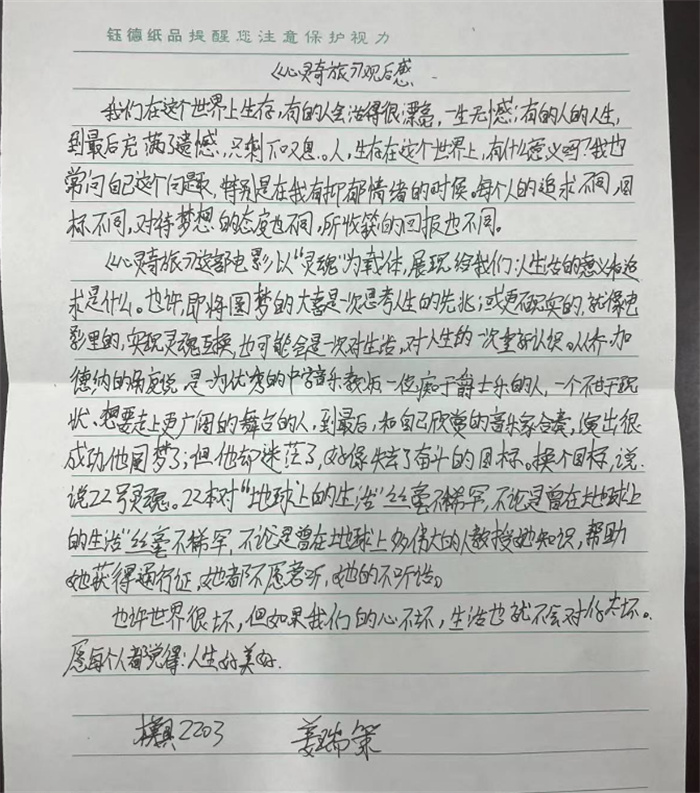 钰德纸品提醒您注意保护视力
《心灵奇旅》观后感
我们在这个世界上生存，有的人会活得很漂亮，一生无憾；有的人的人生，
到最后充满了遗憾，只剩下叹息。人，生存在这个世界上，有什么意义吗？我也
常问自己这个问题，特别是在我有抑郁情绪的时候。每个人的追求不同，目
标不同，对待梦想的态度也不同，所收获的回报也不同。
《心灵奇旅》这部电影以“灵魂”为载体，展现给我们：人生活的意义和追
求是什么。也许，即将圆梦的大喜是一次思考人生的先兆；或更不现实的，就像电
影里的，实现灵魂互换，也可能会是一次对生活，对人生的一次重新认识。从乔·加
德纳的角度说，是一为优秀的中学音乐教师一位痴于爵士乐的人，一个不甘于现
状、想要走上更广阔的舞台的人，到最后，和自己欣赏的音乐家合奏，演出很
成功他圆梦了；但他却迷茫了，好像失去了奋斗的目标。换个目标，说
说22号灵魂。22本对“地球上的生活”丝毫不稀罕，不论是曾在地球上
的生活”丝毫不稀罕，不论是曾在地球上多伟大的人教授她知识，帮助
她获得通行证，她都不愿意听，她的不听
也许世界很坏，但如果我们的心不坏，生活也就不会对你太坏。
愿每个人都觉得：人生好美好.
模具2203 姜瑞策